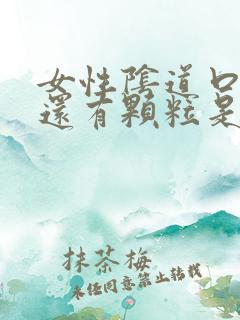 女性陰道口
還有顆粒是
抹茶梅
未经同意禁止转载